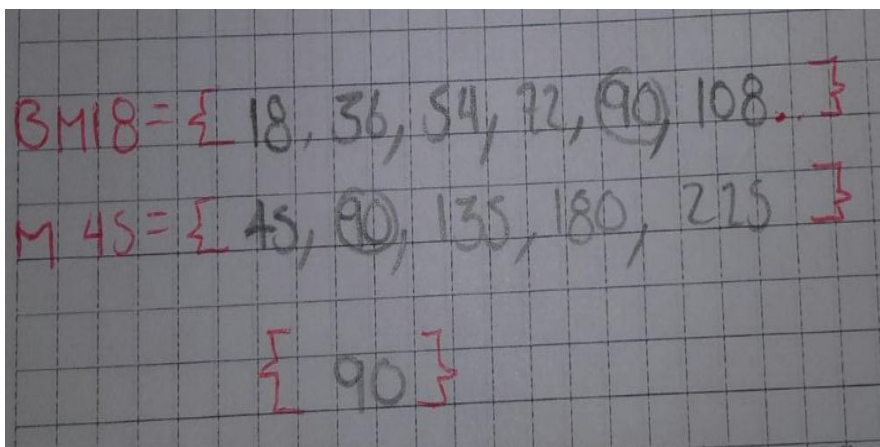 BM18 = { 18, 36, 54, 72, 90, 108... }
M 45 = { 45, 90, 135, 180, 225 }
{ 90 }